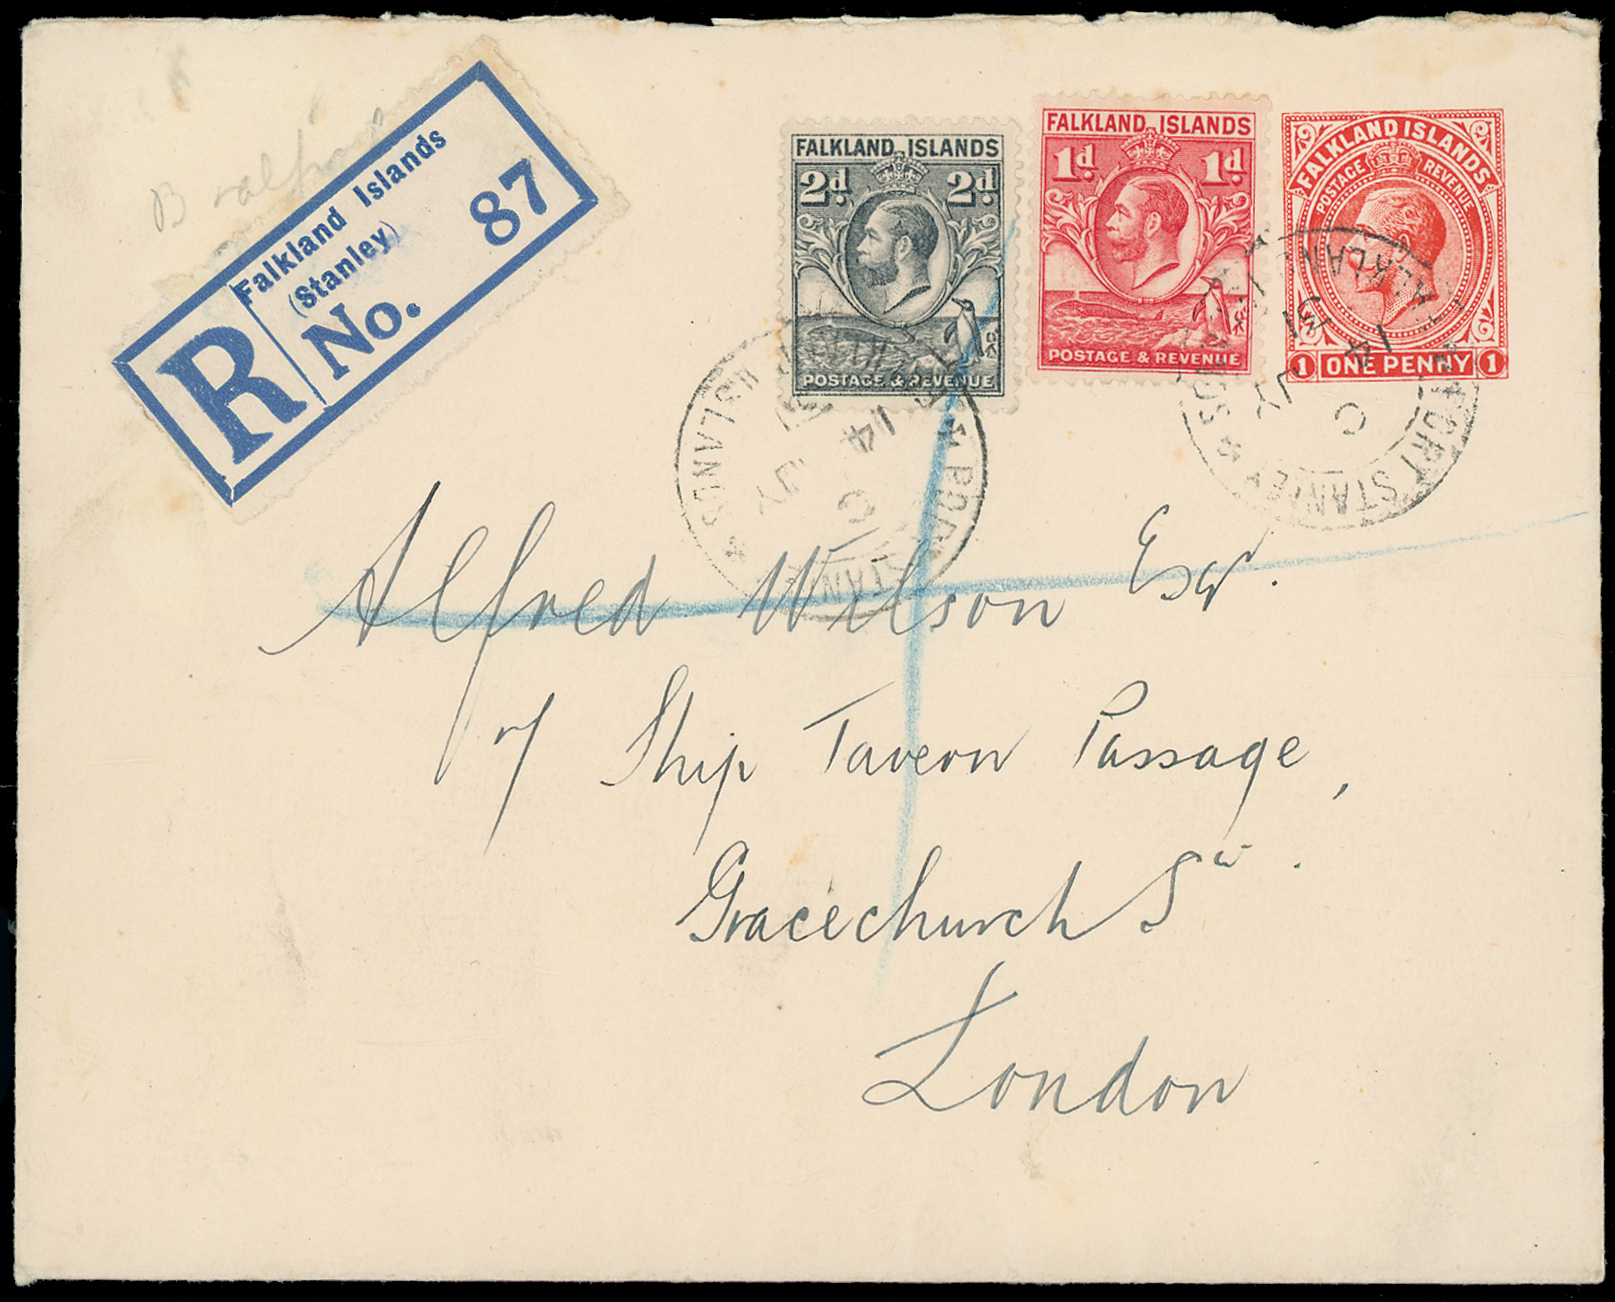 Falkland Islands
(Stanley)
R No. 87
FALKLAND ISLANDS
2d 2d
POSTAGE & REVENUE
FALKLAND ISLANDS
1d 1d
POSTAGE & REVENUE
FALKLAND ISLANDS
POSTAGE REVENUE
1 ONE PENNY 1
PORT STANLEY
C
14 JY
31
FALKLAND ISLANDS
PORT STANLEY
C
14 JY
31
FALKLAND ISLANDS
Alfred Wilson Esqr.
7 Ship Tavern Passage,
Gracechurch St.
London